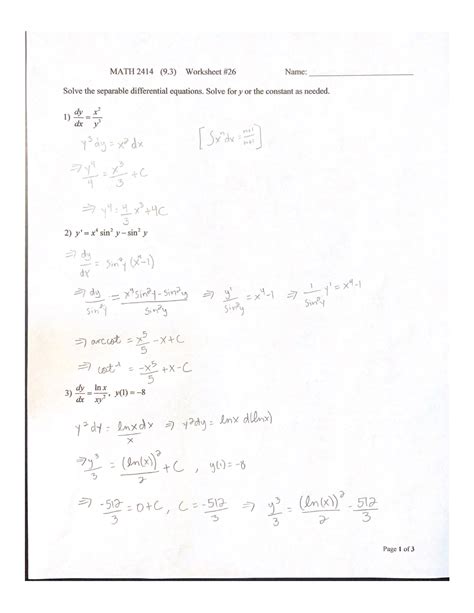 MATH 2414 (9.3) Worksheet #26 Name:
Solve the separable differential equations. Solve for y or the constant as needed.
1) dy/dx = x²/y³
y³ dy = x² dx [∫xⁿdx = n+1/n+1]
⇒ y⁴/4 = x³/3 + C
⇒ y⁴ = 4/3 x³ + 4C
2) y' = x⁴ sin² y – sin² y
⇒ dy/dx = sin²y (x⁴-1)
⇒ dy/sin²y = x⁴sin²y - sin²y/sin²y ⇒ y'/sin²y = x⁴-1 ⇒ 1/sin²y y' = x⁴-1
⇒ arccot = x⁵/5 - x + C
⇒ cot = -x⁵/5 + x - C
3) dy/dx = ln x/xy², y(1) = –8
y² dy = lnx dx/x ⇒ y²dy = lnx d(lnx)
⇒ y³/3 = (ln(x))²/2 + C, y(1) = -8
⇒ -512/3 = 0 + C, C = -512/3 ⇒ y³/3 = (ln(x))²/2 - 512/3
Page 1 of 3